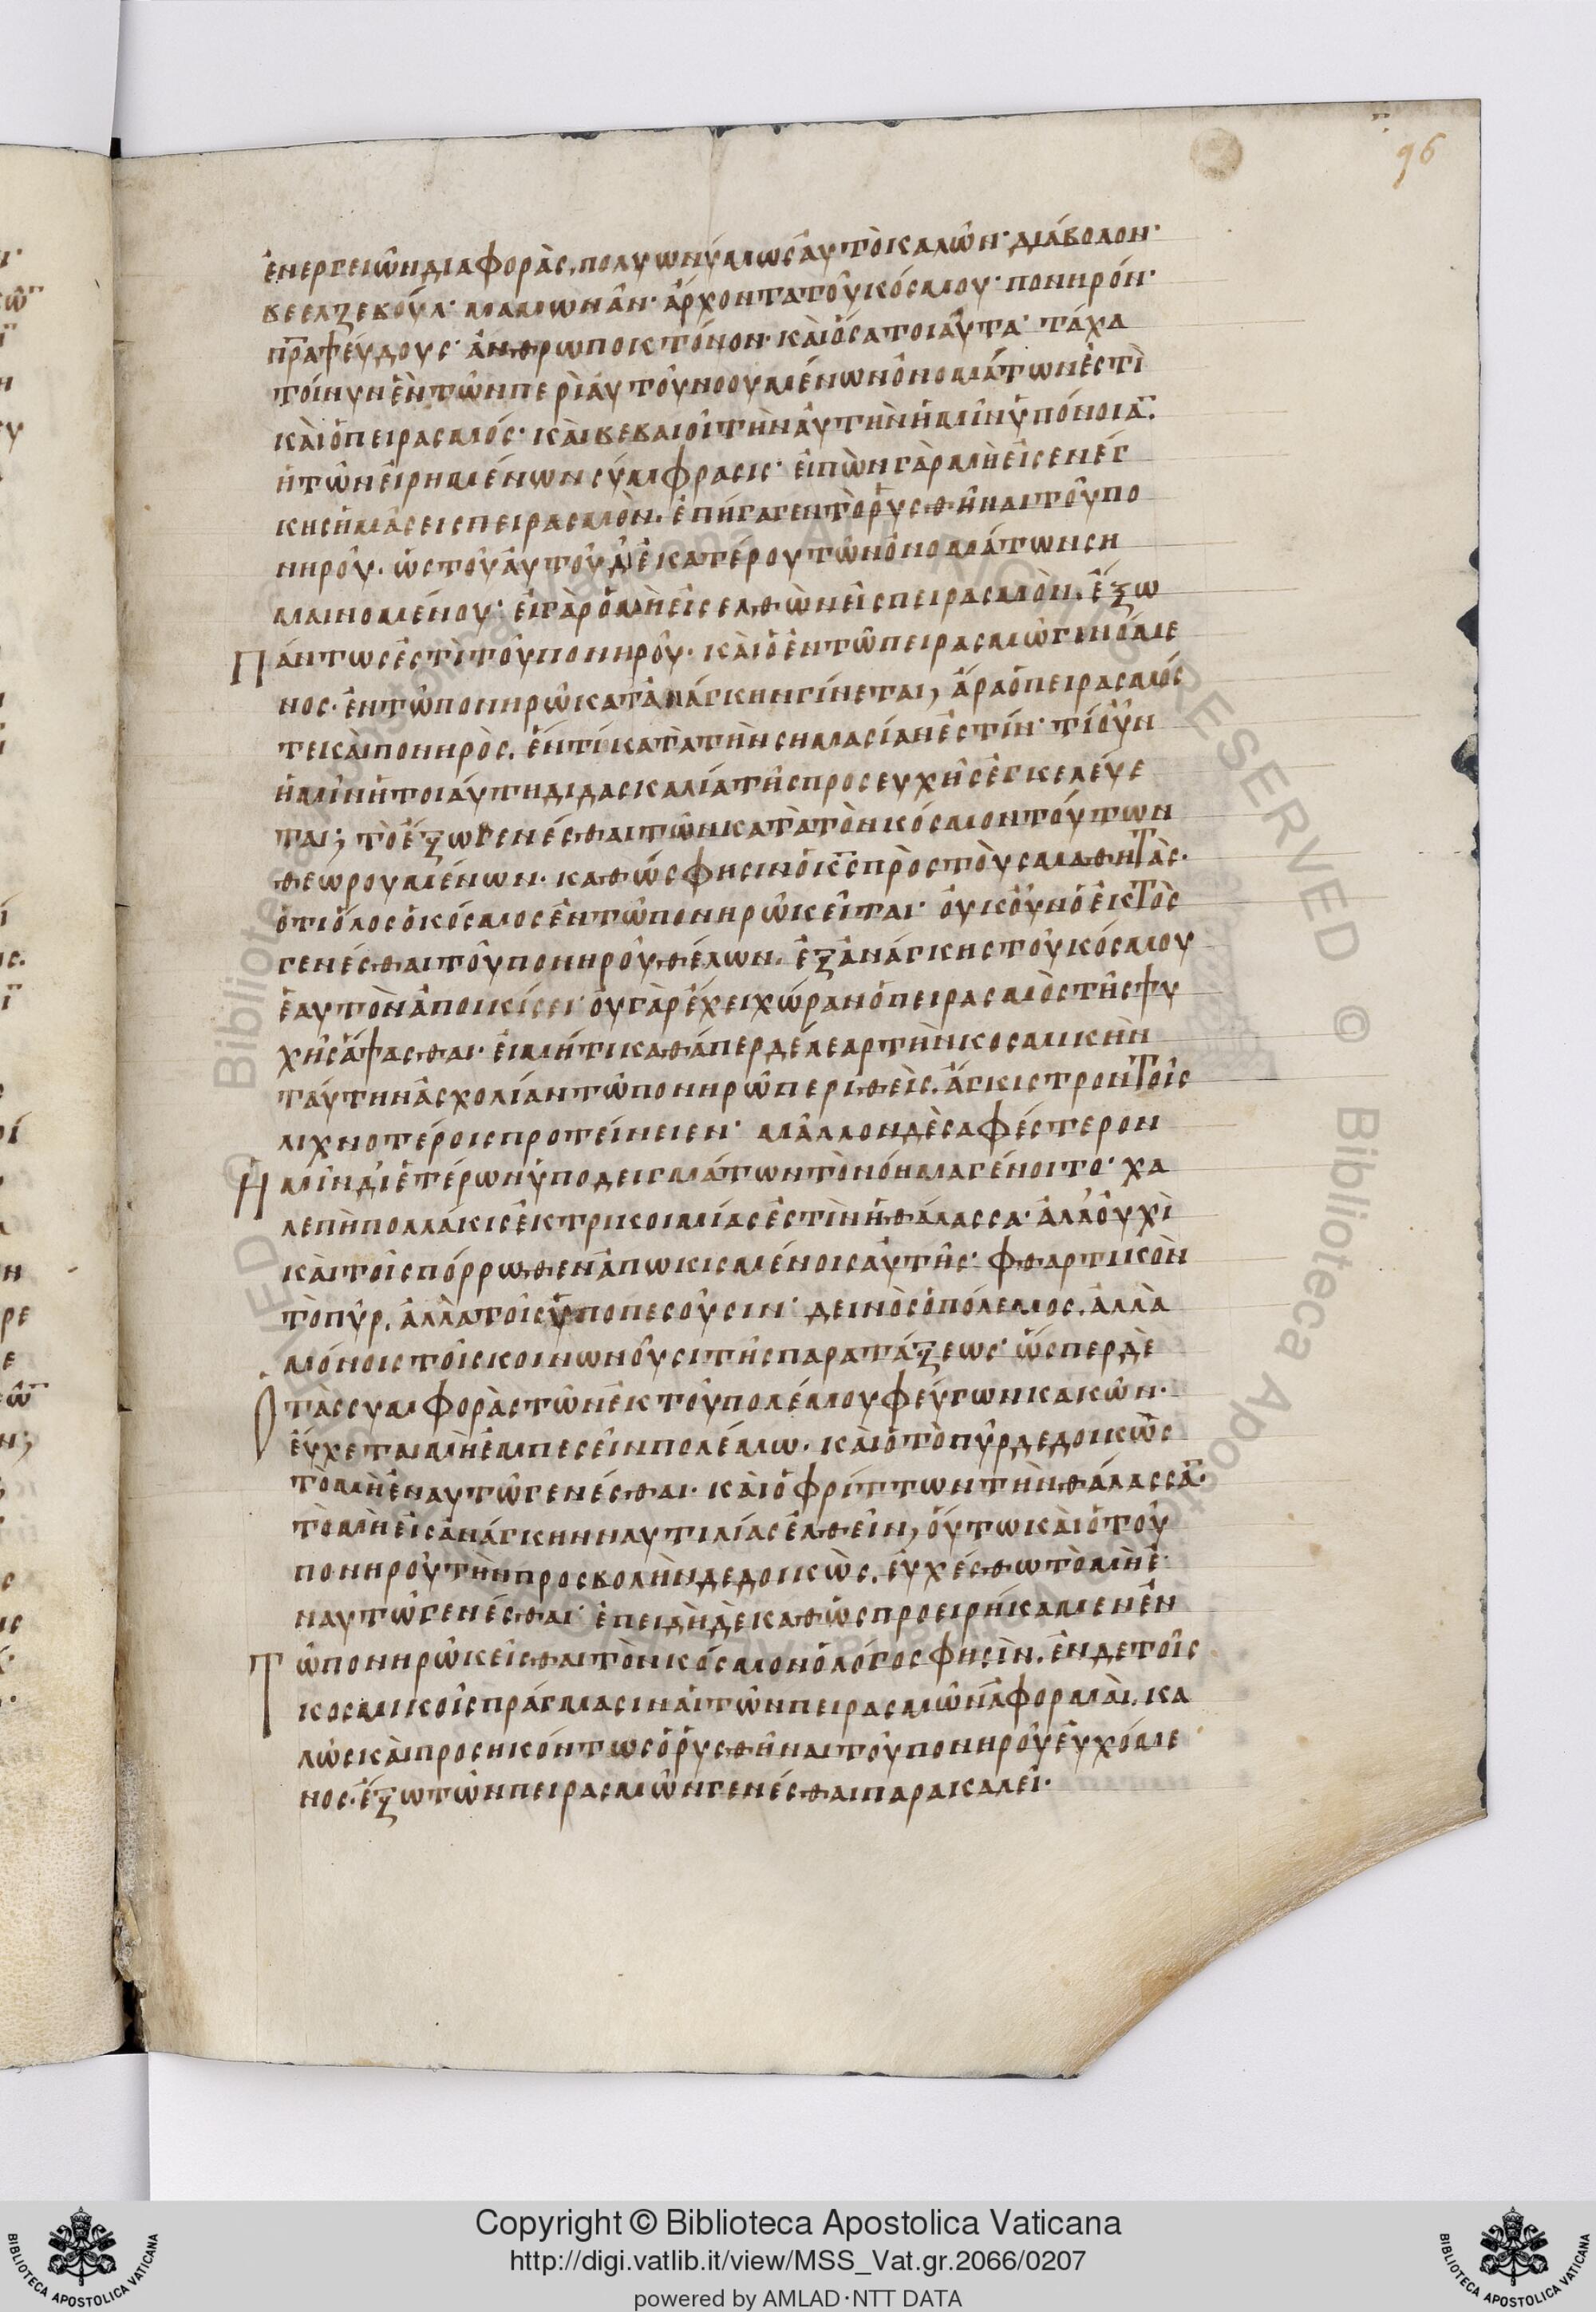 96
ἐνεργειῶν διαφορὰς, πολυωνύμως αὐτὸ καλῶν· διάβολον·
βεελζεβούλ· μαμωνᾶν· ἄρχοντα τοῦ κόσμου· πονηρόν·
π̅ρ̅α ψεύδους· ἀνθρωποκτόνον· καὶ ὅσα τοιαῦτα· τάχα
τοίνυν ἓν τῶν περὶ αὐτοῦ νοουμένων ὀνομάτων ἐστὶ
καὶ ὁ πειρασμός· καὶ βεβαιοῖ τὴν αὐτὴν ἡμῖν ὑπόνοια̅·
ἡ τῶν εἰρημένων σύμφρασις· εἰπὼν γὰρ μὴ εἰσενέγ
κης ἡμᾶς εἰς πειρασμὸν. ἐπήγαγεν τὸ ῥυσθῆναι τοῦ πο
νηροῦ. ὡς τοῦ αὐτοῦ δι᾽ ἑκατέρου τῶν ὀνομάτων ση
μαινομένου· εἰ γὰρ ὁ μὴ εἰσελθὼν εἰς πειρασμὸν. ἔξω
Πάντως ἐστὶ τοῦ πονηροῦ. καὶ ὁ ἐν τῷ πειρασμῷ γινόμε
νος. ἐν τῷ πονηρῷ κατ᾽ ἀνάγκην γίνεται, ἄρα ὁ πειρασμός
τε καὶ πονηρὸς. ἕν τί κατὰ τὴν σημασίαν ἐστίν· τί οὖν
ἡμῖν ἡ τοιαύτη διδασκαλία τῆς προσευχῆς ἐγκελεύε
ται; τὸ ἔξω γενέσθαι τῶν κατὰ τὸν κόσμον τούτων
θεωρουμένων. καθὼς φησιν ὁ κ̅ς̅ πρὸς τοὺς μαθητὰς.
ὅτι ὅλος ὁ κόσμος ἐν τῷ πονηρῷ κεῖται· οὐκοῦν ὁ ἐκτὸς
γενέσθαι τοῦ πονηροῦ θέλων. ἐξ ἀνάγκης τοῦ κόσμου
ἑαυτὸν ἀποικίσει· οὐ γὰρ ἔχει χώραν ὁ πειρασμὸς τῆς ψυ
χῆς ἅψασθαι. εἰ μήτι καθάπερ δέλεαρ τὴν κοσμικὴν
ταύτην ἀσχολίαν τῷ πονηρῷ περιθεὶς. ἄγκιστρον τοῖς
λιχνοτέροις προτείνειεν· μᾶλλον δὲ σαφέστερον
Ἡμῖν δι᾽ ἑτέρων ὑποδειγμάτων τὸ νόημα γένοιτο· χα
λεπὴ πολλάκις ἐκ τρικοιμίας ἐστὶν ἡ θάλασσα· ἀλλ᾽ οὐχὶ
καὶ τοῖς πόρρωθεν ἀπωκισμένοις αὐτῆς· φθαρτικὸν
τὸ πῦρ. ἀλλὰ τοῖς ὑποπεσοῦσιν· δεινὸς ὁ πόλεμος. ἀλλὰ
μόνοις τοῖς κοινωνοῦσι τῆς παρατάξεως· ὥσπερ δὲ
Ὁ τὰς συμφορὰς τῶν ἐκ τοῦ πολέμου φεύγων κακῶν·
εὔχεται μὴ ἐμπεσεῖν πολέμω. καὶ ὁ τὸ πῦρ δεδοικὼς
τὸ μὴ ἐν αυτῷ γενέσθαι. καὶ ὁ φρίττων τὴν θάλασσα̅·
τὸ μὴ εἰς ἀνάγκην ναυτιλίας ἐλθεῖν, οὕτω καὶ ὁ τοῦ
πονηροῦ τὴν προσβολὴν δεδοικὼς. εὐχέσθω τὸ μὴ ἐ
ν αυτῷ γενέσθαι· ἐπειδὴ δὲ καθὼς προειρήκαμεν ἐν
Τῷ πονηρῷ κεῖσθαι τὸν κόσμον ὁ λόγος φησὶν. ἐν δὲ τοῖς
κοσμικοῖς πράγμασιν αἱ τῶν πειρασμῶν ἀφορμαὶ. κα
λῶς καὶ προσηκόντως ὁ ῥυσθῆναι τοῦ πονηροῦ εὐχόμε
νος. ἔξω τῶν πειρασμῶν γενέσθαι παρακαλεῖ·
© Biblioteca Apostolica Vaticana ALL RIGHTS RESERVED
BIBLIOTECA APOSTOLICA VATICANA
Copyright © Biblioteca Apostolica Vaticana
http://digi.vatlib.it/view/MSS_Vat.gr.2066/0207
powered by AMLAD·NTT DATA
BIBLIOTECA APOSTOLICA VATICANA